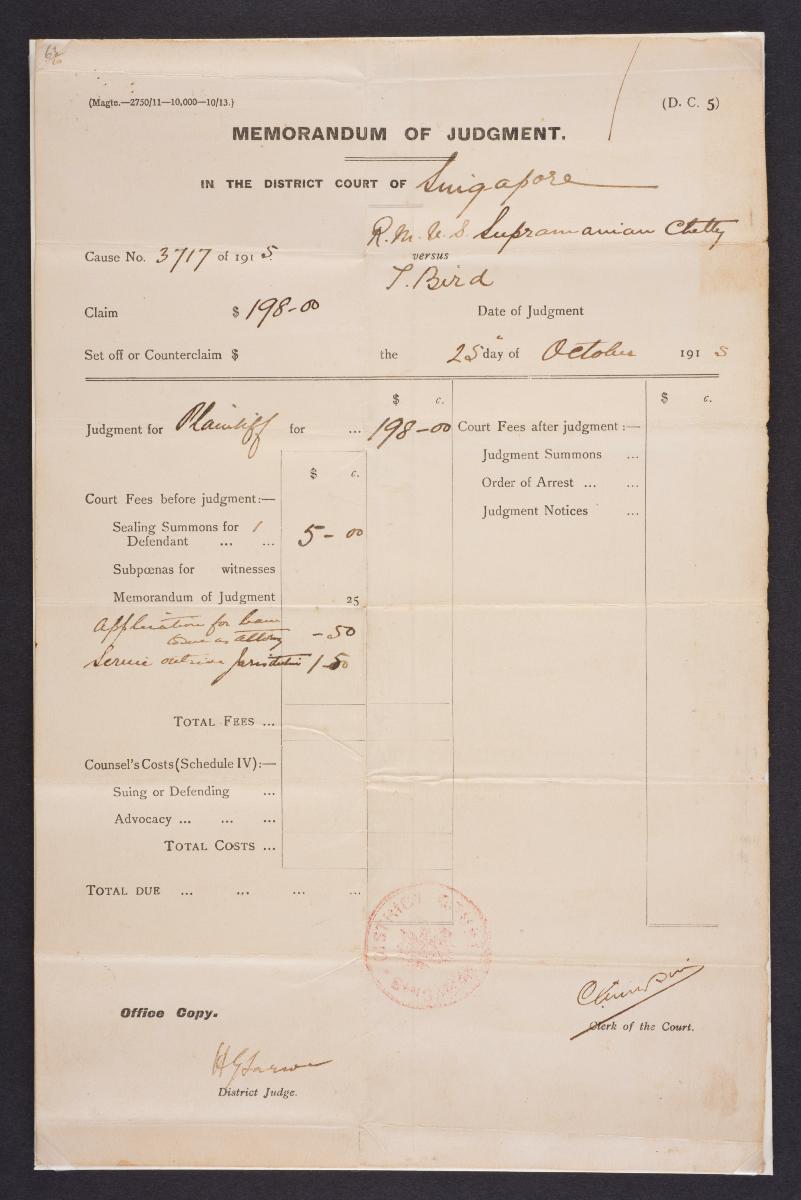 (Magte.—2750/11—10,000—10/13.)
(D. C. 5)
MEMORANDUM OF JUDGMENT.
IN THE DISTRICT COURT OF Singapore
R.M.V.S. Supramanian Chetty
Cause No. 3717 of 1915 versus
T. Bird
Claim $ 198-00 Date of Judgment
Set off or Counterclaim $ the 25 day of October 1915
$ c. $ c.
Judgment for Plaintiff for ... 198-00 Court Fees after judgment :—
Judgment Summons ...
$ c.
Order of Arrest ... ...
Court Fees before judgment:—
Judgment Notices ...
Sealing Summons for 1
Defendant ... ... 5-00
Subpœnas for witnesses
Memorandum of Judgment 25
Application for
as -50
Service outside Jurisdiction 1-50
TOTAL FEES ...
Counsel's Costs (Schedule IV):—
Suing or Defending ...
Advocacy ... ... ...
TOTAL COSTS ...
TOTAL DUE ... ... ... ...
DISTRICT COURT SINGAPORE
Office Copy.
Clerk of the Court.
District Judge.